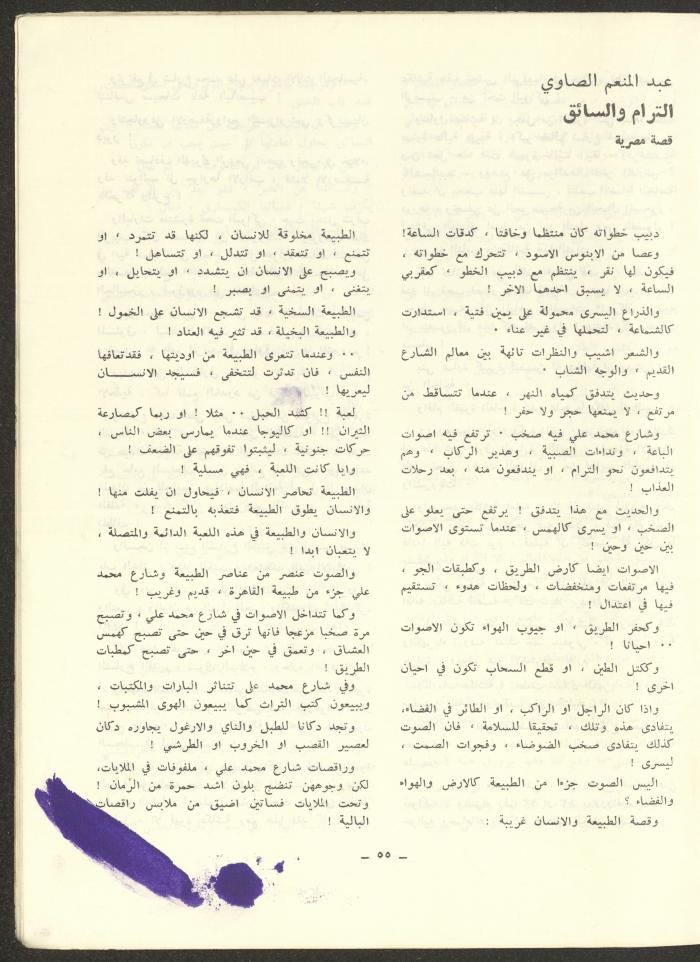 عبد المنعم الصاوي
الترام والسائق
قصة مصرية
دبيب خطواته كان منتظما وخافتا ، كدقات الساعة!
وعصا من الابنوس الاسود ، تتحرك مع خطواته ،
فيكون لها نقر ، ينتظم مع دبيب الخطو ، كعقربي
الساعة ، لا يسبق احدهما الاخر !
والذراع اليسرى محمولة على يمين فتية ، استدارت
كالشماعة ، لتحملها في غير عناء ٠
والشعر اشيب والنظرات تائهة بين معالم الشارع
القديم ، والوجه الشاب ٠
وحديث يتدفق كمياه النهر ، عندما تتساقط من
مرتفع ، لا يمنعها حجر ولا حفر !
وشارع محمد علي فيه صخب ٠ ترتفع فيه اصوات
الباعة ، ونداءات الصبية ، وهدير الركاب ، وهم
يتدافعون نحو الترام ، او يندفعون منه ، بعد رحلات
العذاب !
والحديث مع هذا يتدفق ! يرتفع حتى يعلو على
الصخب ، او يسرى كالهمس ، عندما تستوى الاصوات
بين حين وحين !
الاصوات ايضا كارض الطريق ، وكطبقات الجو ،
فيها مرتفعات ومنخفضات ، ولحظات هدوء ، تستقيم
فيها في اعتدال !
وكحفر الطريق ، او جيوب الهواء تكون الاصوات
٠٠ احيانا !
وككتل الطين ، او قطع السحاب تكون في احيان
اخرى !
واذا كان الراجل او الراكب ، او الطائر في الفضاء،
يتفادى هذه وتلك ، تحقيقا للسلامة ، فان الصوت
كذلك يتفادى صخب الضوضاء ، وفجوات الصمت ،
ليسرى !
اليس الصوت جزءا من الطبيعة كالارض والهواء
والفضاء ؟
وقصة الطبيعة والانسان غريبة :
الطبيعة مخلوقة للانسان ، لكنها قد تتمرد ، او
تتمنع ، او تتعقد ، او تتدلل ، او تتساهل !
ويصبح على الانسان ان يتشدد ، او يتحايل ، او
يتغنى ، او يتمنى او يصبر !
الطبيعة السخية ، قد تشجع الانسان على الخمول !
والطبيعة البخيلة ، قد تثير فيه العناد !
٠٠ وعندما تتعرى الطبيعة من اوديتها ، فقد تعافها
النفس ، فان تدثرت لتتخفى ، فسيجد الانســـان
ليعريها !
لعبة !! كشد الحبل ٠٠ مثلا ! او ربما كمصارعة
الثيران !! او كاليوجا عندما يمارس بعض الناس ،
حركات جنونية ، ليثبتوا تفوقهم على الضعف !
وايا كانت اللعبة ، فهي مسلية !
الطبيعة تحاصر الانسان ، فيحاول ان يفلت منها !
والانسان يطوق الطبيعة فتعذبه بالتمنع !
والانسان والطبيعة في هذه اللعبة الدائمة والمتصلة ،
لا يتعبان ابدا !
والصوت عنصر من عناصر الطبيعة وشارع محمد
علي جزء من طبيعة القاهرة ، قديم وغريب !
وكما تتداخل الاصوات في شارع محمد علي ، وتصبح
مرة صخبا مزعجا فانها ترق في حين حتى تصبح كهمس
العشاق ، وتعمق في حين اخر ، حتى تصبح كمطبات
الطريق !
وفي شارع محمد على تتناثر البارات والمكتبات ،
ويبيعون كتب التراث كما يبيعون الهوى المشبوب !
وتجد دكانا للطبل والناي والارغول يجاوره دكان
لعصير القصب او الخروب او الطرشي !
وراقصات شارع محمد علي ، ملفوفات في الملايات،
لكن وجوههن تنضج بلون اشد حمرة من الرمان !
وتحت الملايات فساتين اضيق من ملابس راقصات
البالية !
ــ ٥٥ ــ